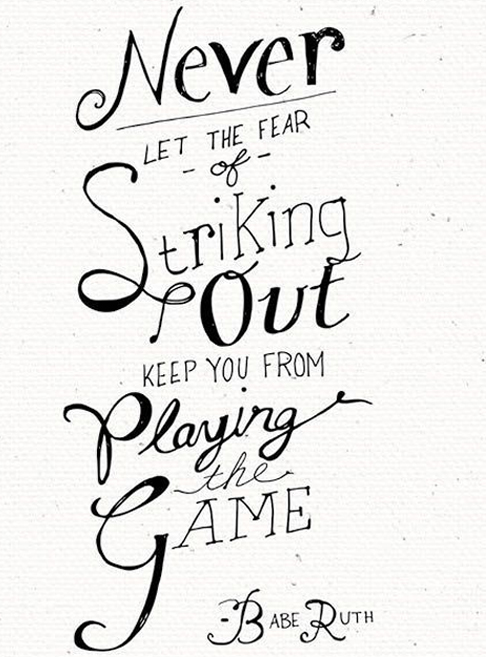 Never
LET THE FEAR
- of -
Striking
Out
KEEP YOU FROM
Playing
the
GAME
-BABE RUTH